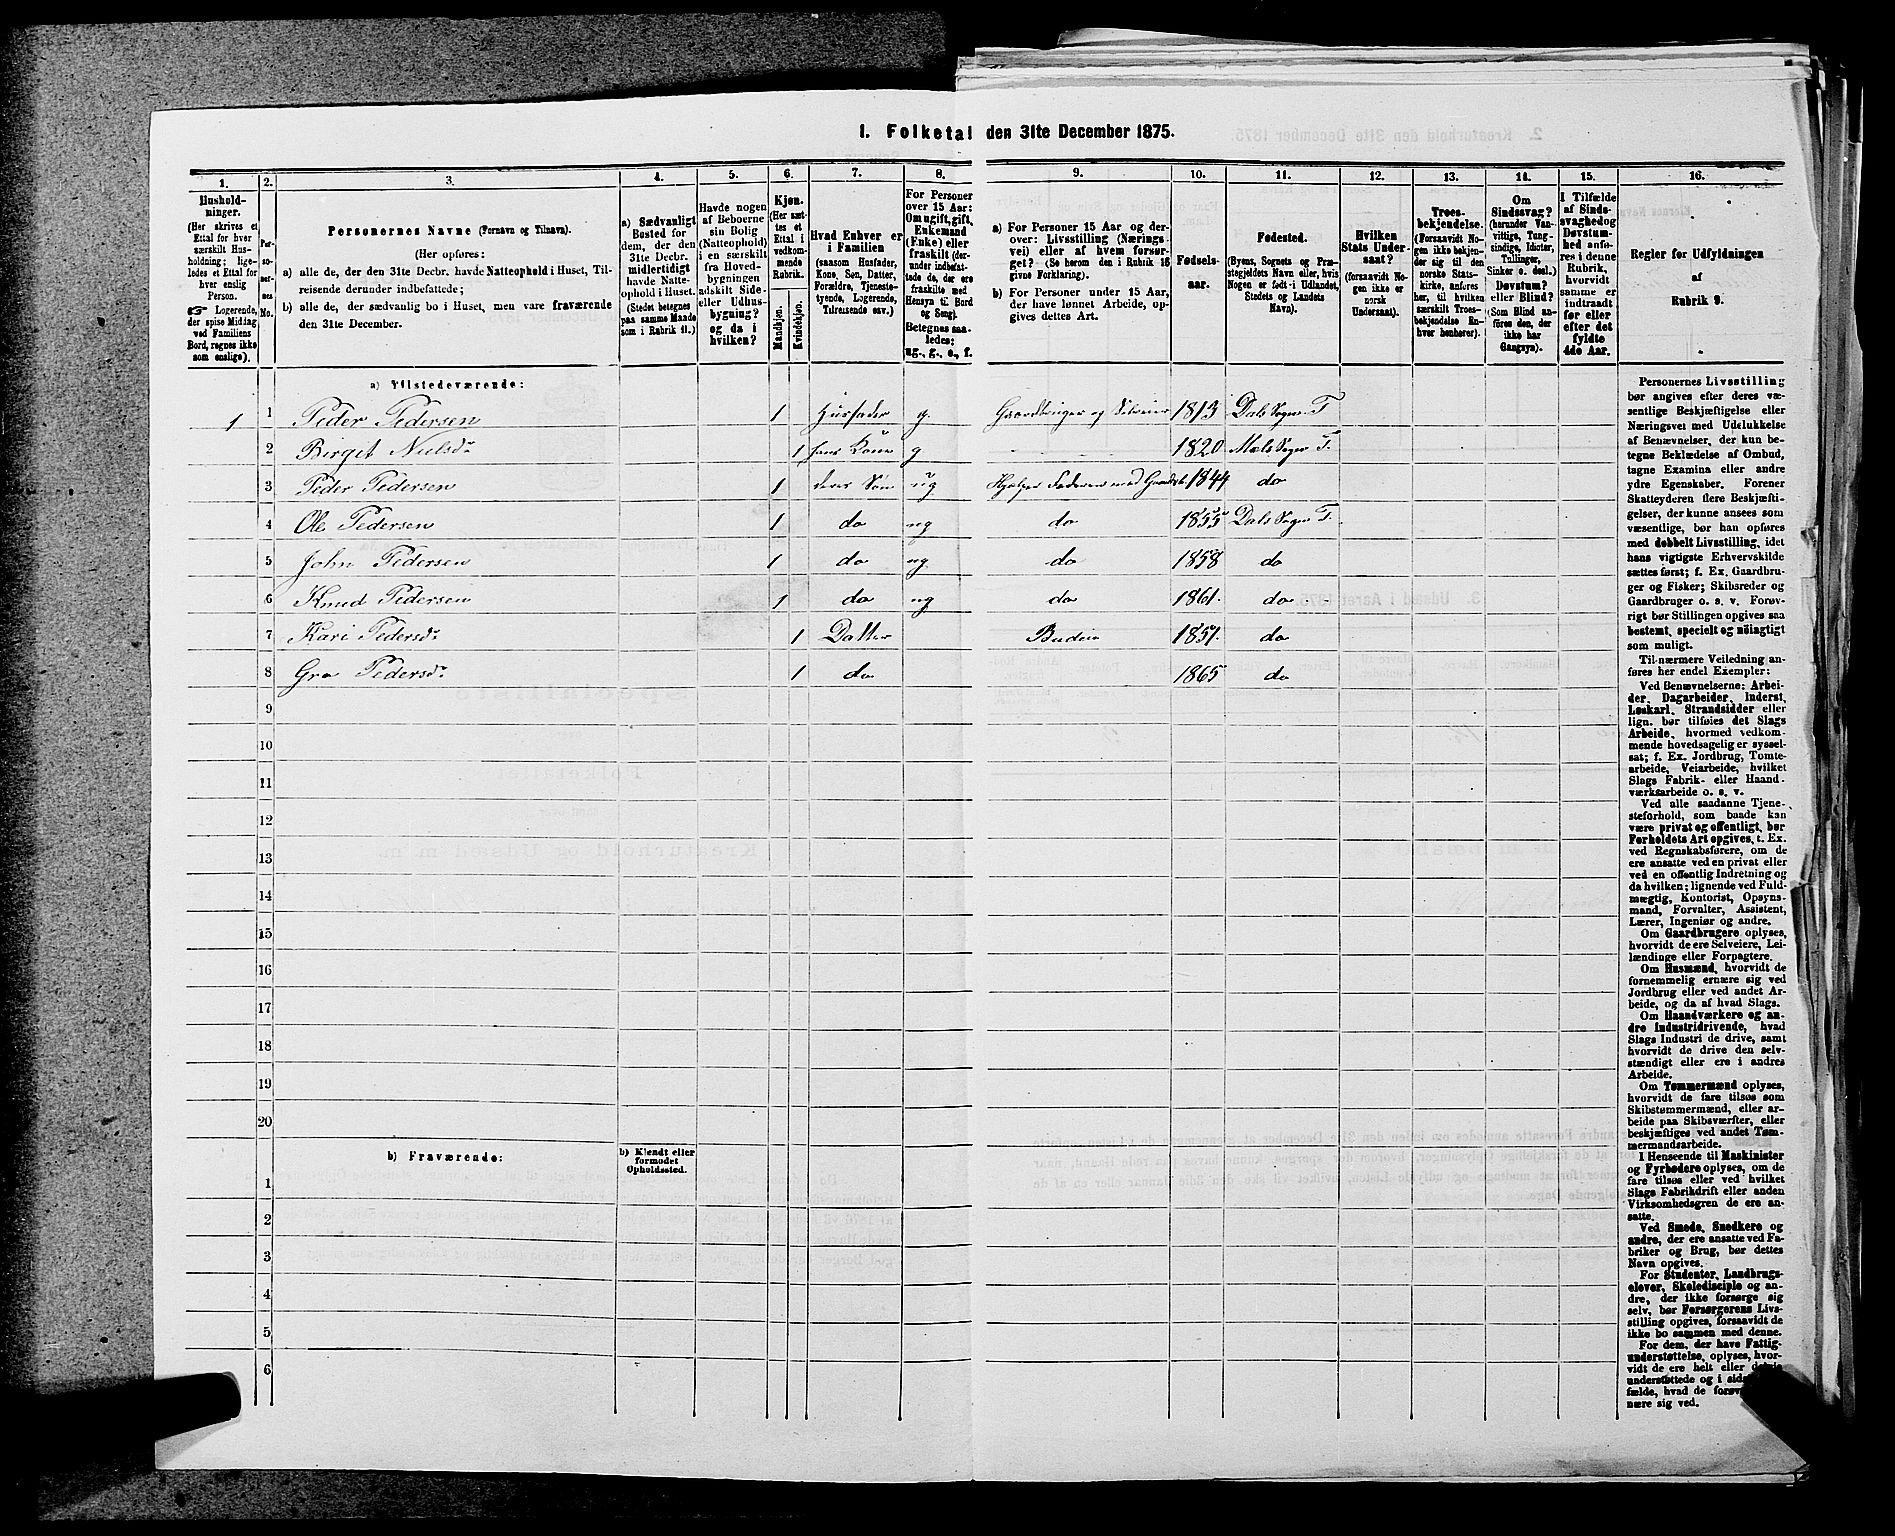 1. Folketal den 31te December 1875.
1. 2. 3. 4. 5. 6. 7. 8. 9. 10. 11. 12. 13. 14. 15. 16.
Hushold-
ninger.
(Her skrives et
Ettal for hver
særskilt Hus-
holdning; lige-
ledes et Ettal for
hver enslig
Person.
☞ Logerende,
der spise Middag
ved Familiens
Bord, regnes ikke
som enslige).
Per-
so-
ner-
nes
No.
Personernes Navne (Fornavn og Tilnavn).
(Her opføres:
a) alle de, der den 31te Decbr. havde Natteophold i Huset, Til-
reisende derunder indbefattede;
b) alle de, der sædvanlig bo i Huset, men vare fraværende
den 31te December.
a) Sædvanligt
Bosted for
dem, der den
31te Decbr.
midlertidigt
havde Natte-
ophold i Huset.
(Stedet betegnes
paa samme Maade
som i Rubrik 11.)
Havde nogen
af Beboerne
sin Bolig
(Natteophold)
i en særskilt
fra Hoved-
bygningen
adskilt Side-
eller Udhus-
bygning?
og da i
hvilken?
Kjøn.
(Her sæt-
tes et
Ettal i
vedkom-
mende
Rubrik.
Mandkjøn.
Kvindekjøn.
Hvad Enhver er
i Familien
(saasom Husfader,
Kone, Søn, Datter,
Forældre, Tjeneste-
tyende, Logerende,
Tilreisende osv.)
For Personer
over 15 Aar:
Om ugift, gift,
Enkemand
(Enke) eller
fraskilt (der-
under indbefat-
tede de, der ere
fraskilte med
Hensyn til Bord
og Seng).
Betegnes saa-
ledes:
ug., g., e., f.
a) For Personer 15 Aar og der-
over: Livsstilling (Nærings-
vei) eller af hvem forsør-
get? (Se herom den i Rubrik 16
givne Forklaring).
b) For Personer under 15 Aar,
der have lønnet Arbeide, op-
gives dettes Art.
Fødsels-
aar.
Fødested.
(Byens, Sognets og Præ-
stegjeldets Navn eller, hvis
Nogen er født i Udlandet,
Stedets og Landets
Navn).
Hvilken
Stats Under-
saat?
(forsaavidt No-
gen ikke er
norsk
Undersaat).
Troes-
bekjendelse.
(Forsaavidt No-
gen ikke bekjen-
der sig til den
norske Stats-
kirke, anføres
her, til hvilken
særskilt Troes-
bekjendelse En-
hver henhører).
Om
Sindssvag?
(herunder Van-
vittige, Tung-
sindige, Idioter,
Tullinger,
Sinker o. desl.)
Døvstum?
eller Blind?
(Som Blind an-
føres den, der
ikke har
Gangsyn).
I Tilfælde
af Sinds-
svaghed og
Døvstum-
hed anfø-
res i denne
Rubrik,
hvorvidt
samme er
indtraadt
før eller
efter det
fyldte
4de Aar.
Regler for Udfyldningen
af
Rubrik 9.
a) Tilstedeværende:
1 1 Peder Pedersen 1 Husfader g. Gaardbruger og Selveier 1813 Dals Sogn T
2 Birgit Nielsdr 1 hans Kone g 1820 Mæls Sogn T.
3 Peder Pedersen 1 deres Søn ug Hjælper Faderen med Gaardsb 1844 do
4 Ole Pedersen 1 do ug do 1855 Dals Sogn T.
5 John Pedersen 1 do ug do 1858 do
6 Knud Pedersen 1 do ug do 1861. do
7 Kari Pedersdr 1 Datter Budeie 1851. do
8 Gro Pedersdr 1 do 1865 do
9
10
11
12
13
14
15
16
17
18
19
20
b) Fraværende:
b) Kjendt eller
formodet
Opholdssted.
1
2
3
4
5
6
Personernes Livsstilling
bør angives efter deres væ-
sentlige Beskjæftigelse eller
Næringsvei med Udelukkelse
af Benævnelser, der kun be-
tegne Beklædelse af Ombud,
tagne Examina eller andre
ydre Egenskaber. Forener
Skatteyderen flere Beskjæfti-
gelser, der kunne ansees som
væsentlige, bør han opføres
med dobbelt Livsstilling, idet
hans vigtigste Erhvervskilde
sættes først; f. Ex. Gaardbru-
ger og Fisker; Skibsreder og
Gaardbruger o. s. v. Forøv-
rigt bør Stillingen opgives saa
bestemt, specielt og nöiagtigt
som muligt.
Til nærmere Veiledning an-
føres her endel Exempler:
Ved Benævnelserne: Arbei-
der, Dagarbeider, Inderst,
Løskarl, Strandsidder eller
lign. bør tilføies det Slags
Arbeide, hvormed vedkom-
mende hovedsagelig er syssel-
sat; f. Ex. Jordbrug, Tomte-
arbeide, Veiarbeide, hvilket
Slags Fabrik- eller Haand-
værksarbeide o. s. v.
Ved alle saadanne Tjene-
steforhold, som baade kan
være privat og offentligt, bør
Forholdets Art opgives, t. Ex.
ved Regnskabsførere, om de
ere ansatte ved en privat eller
ved en offentlig Indretning og
da hvilken; lignende ved Fuld-
mægtig, Kontorist, Opsyns-
mand, Forvalter, Assistent,
Lærer, Ingeniør og andre.
Om Gaardbrugere oplyses,
hvorvidt de ere Selveiere, Lei-
lændinge eller Forpagtere.
Om Husmænd, hvorvidt de
fornemmelig ernære sig ved
Jordbrug eller ved andet Ar-
beide, og da af hvad Slags.
Om Haandværkere og an-
dre industridrivende, hvad
Slags Industri de drive, samt
hvorvidt de drive den selv-
stændigt eller ere i andres
Arbeide.
Om Tømmermænd oplyses,
hvorvidt de fare tilsøs som
Skibstømmermænd, eller ar-
beide paa Skibsværfter, eller
beskjæftiges ved andet Tøm-
mermandsarbeide.
I Henseende til Maskinister
og Fyrbødere oplyses, om de
fare tilsøs eller ved hvilket
Slags Fabrikdrift eller anden
Virksomhedsgren de ere an-
satte.
Ved Smede, Snedkere og
andre, der ere ansatte ved Fa-
briker og Brug, bør dettes
Navn opgives.
For Studenter, Landbrugs-
elever, Skoledisciple og an-
dre, der ikke forsørge sig
selv, bør Forsørgerens Livs-
stilling opgives, forsaavidt de
ikke bo sammen med denne.
For dem, der have Fattig-
understøttelse, oplyses, hvor-
vidt de ere helt eller
understøttede og i
fælde, hvad de
nære sig ved.